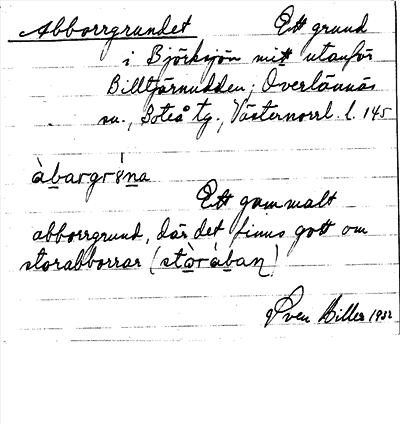 Abborrgrundet Ett grund
i Björksjön mitt utanför
Billtjärnudden; Överlännäs
sn., Boteå tg., Västernorrl. l. 145
Ett gammalt
abborrgrund, där det finns gott om
storabborrar (stòràban)
Sven Hiller 1932